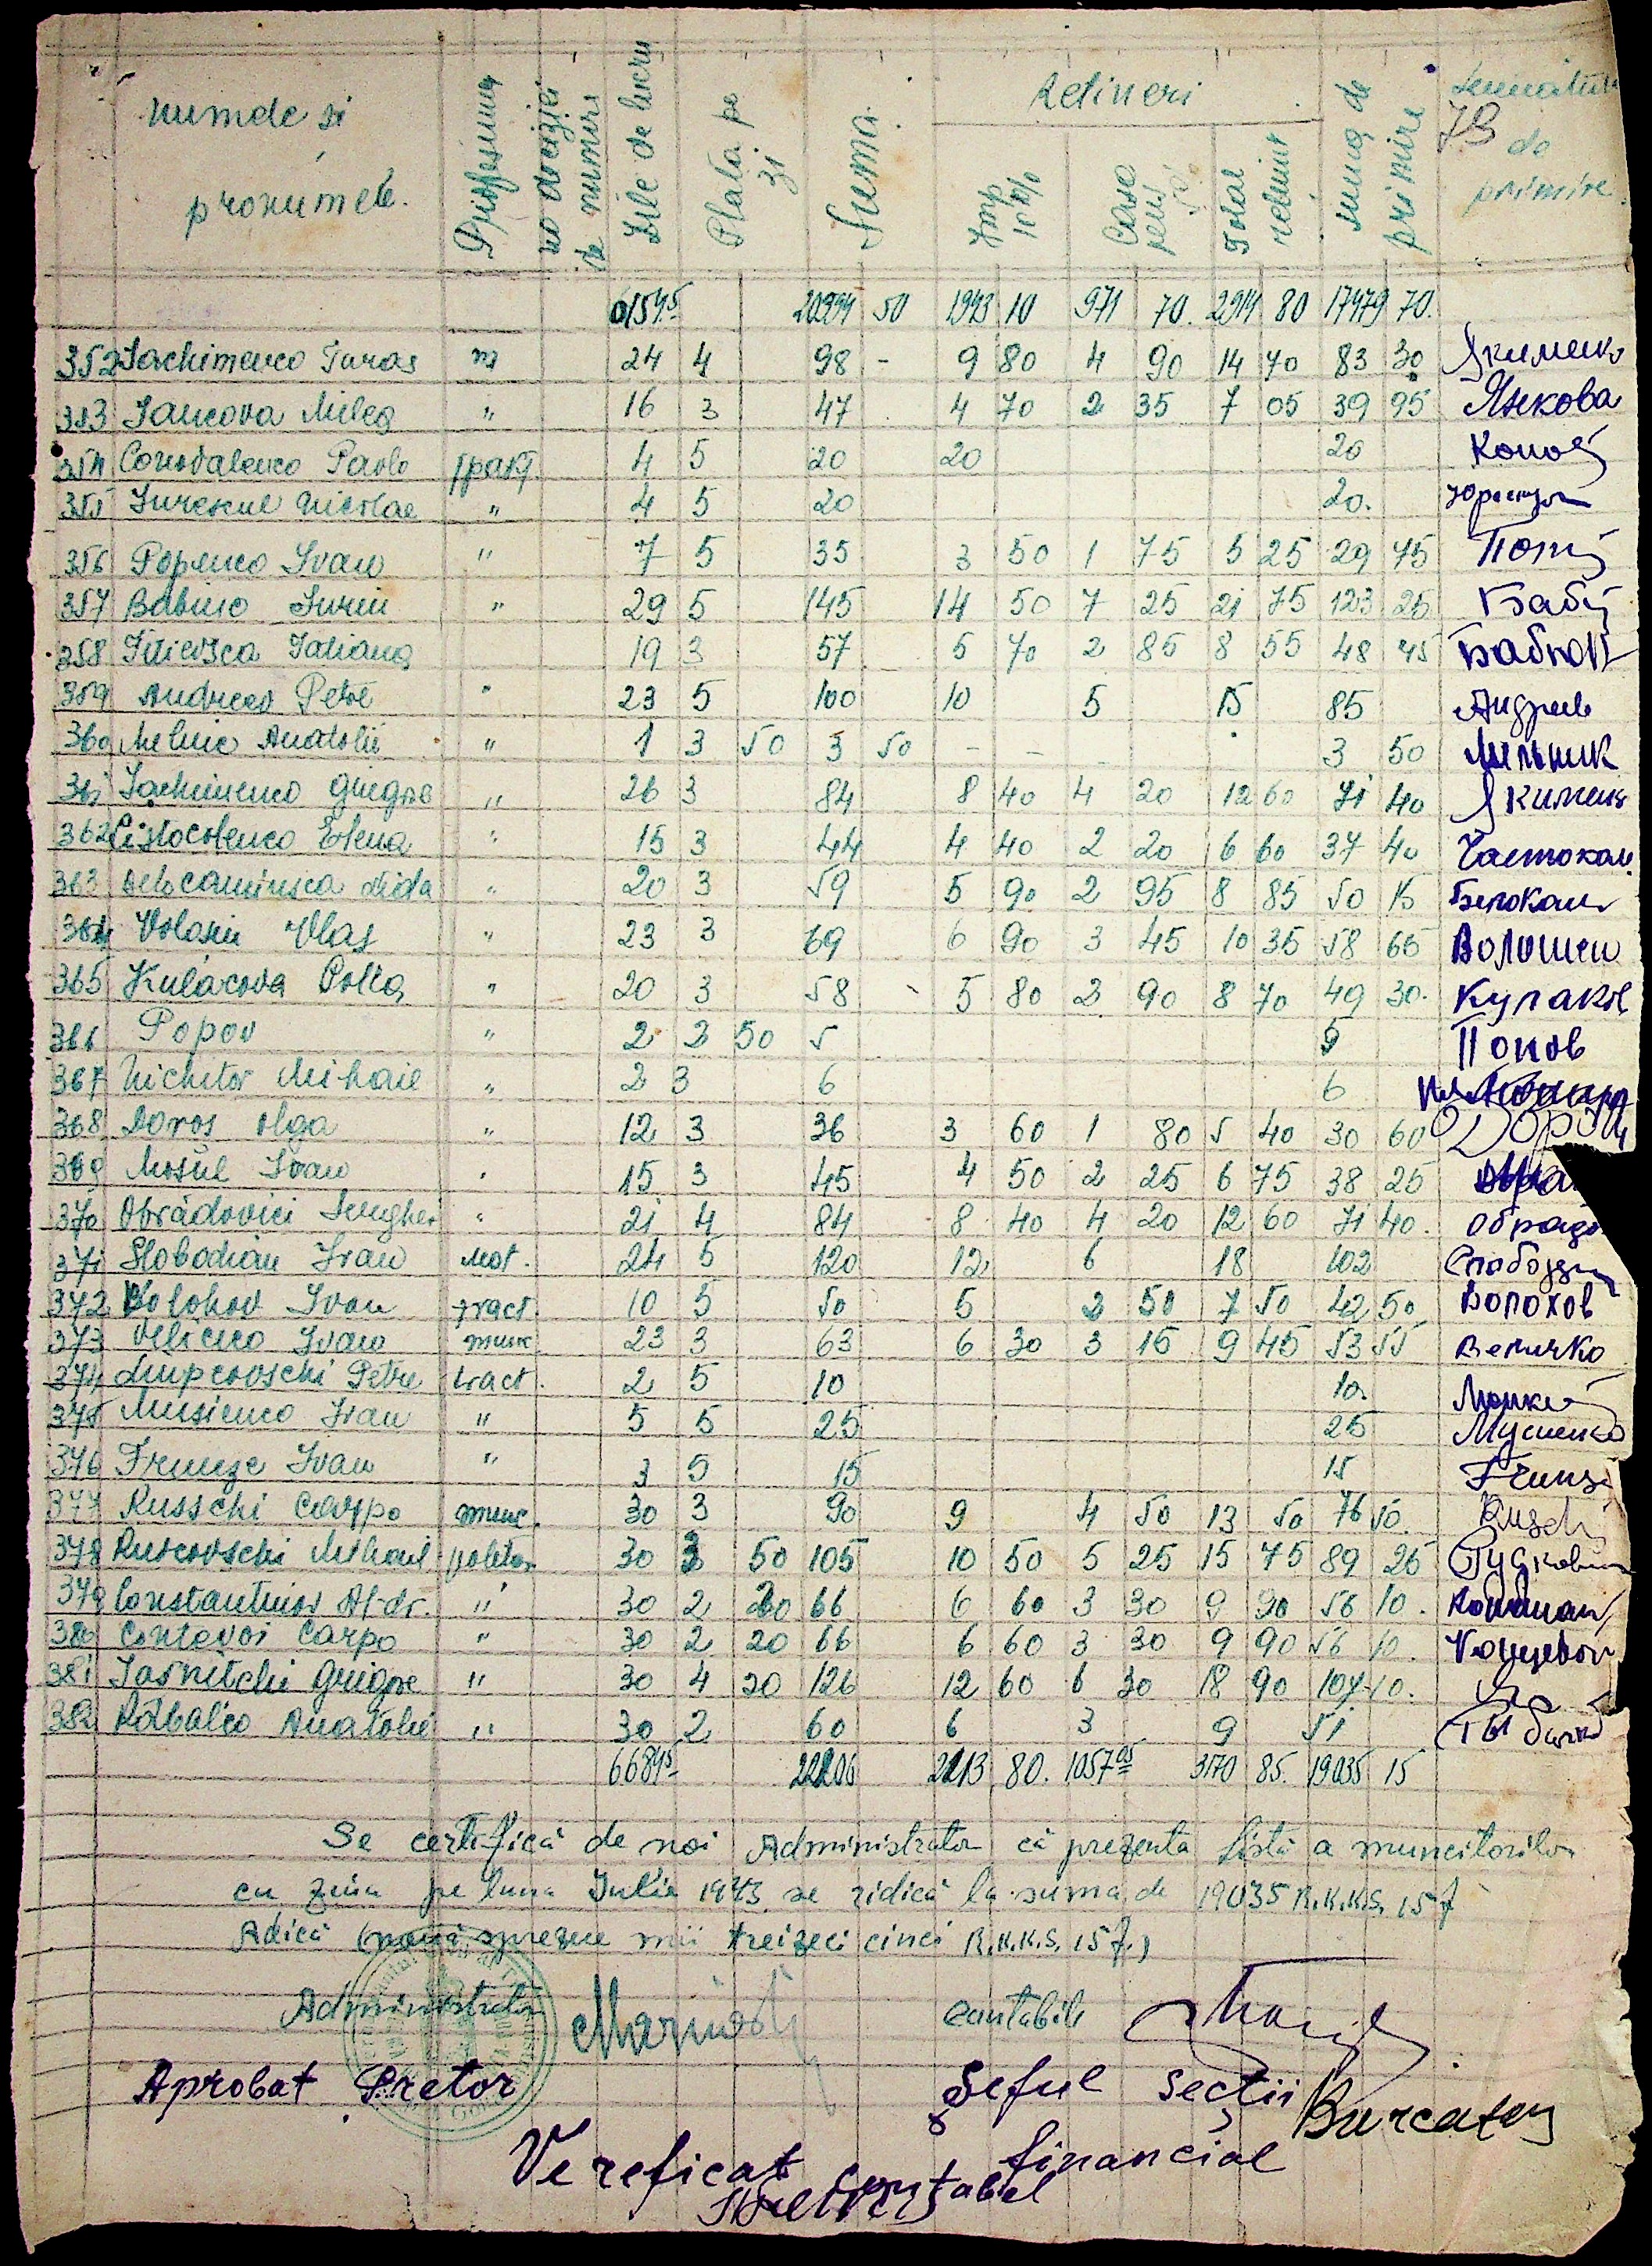 numele si pronumele. Profesiunea no deciziei de numire Zile de lucru Plata pe zi Suma Retineri Imp 10% Casa pens Total retinut Suma de primire Semnătura de primire
79
6154.5 20394 50 1943 10 971 70. 2914 80 17479 70.
352 Iachimenco Turas m 24 4 98 - 9 80 4 90 14 70 83 30
353 Iancova Milea " 16 3 47 4 70 2 35 7 05 39 95 Янкова
354 Conovalenco Pavlo тракт. 4 5 20 20 20 Конов
355 Iurescul Nicolae " 4 5 20 20.
356 Popenco Ivan " 7 5 35 3 50 1 75 5 25 29 75
357 Babuio Iurii " 29 5 145 14 50 7 25 21 75 123 25 Бабу
358 Tatiana 19 3 57 5 70 2 85 8 55 48 45
359 Andreev Petre " 23 5 100 10 5 15 85 Андреев
360 Melnic Anatolii " 1 3 50 3 50 - - 3 50 Мельник
361 Iachimenco Grigore " 26 3 84 8 40 4 20 12 60 71 40 Якименко
362 Cistocolenco Elena " 15 3 44 4 40 2 20 6 60 37 40 Частокол
363 Belocaminsca Lida " 20 3 59 5 90 2 95 8 85 50 15 Белокам
364 Volosin Vlas " 23 3 69 6 90 3 45 10 35 58 65 Волошин
365 Kulacova Polia " 20 3 58 5 80 2 90 8 70 49 30. Кулаков
366 Popov " 2 2 50 5 5 Попов
367 Nichitor Mihail " 2 3 6 6
368 Doros Olga " 12 3 36 3 60 1 80 5 40 30 60 Дорош
369 Mosul Ivan " 15 3 45 4 50 2 25 6 75 38 25
370 Obrădovici Serghei " 21 4 84 8 40 4 20 12 60 71 40. Обрадо
371 Slobodian Ivan mot. 24 5 120 12 6 18 102 Слободян
372 Volohov Ivan tract. 10 5 50 5 2 50 7 50 42 50 Волохов
373 Velicico Ivan munc. 23 3 63 6 30 3 15 9 45 53 55 Величко
374 Lupcovschi Petre tract. 2 5 10 10.
375 Musienco Ivan " 5 5 25 25 Мусиенко
376 Frunze Ivan " 3 5 15 15 Frunze
377 Russchi Carpo munc. 30 3 90 9 4 50 13 50 76 50. Ruschi
378 Ruscovschi Mihail politer 30 3 50 105 10 50 5 25 15 75 89 25
379 Constantinov Al-dr. " 30 2 20 66 6 60 3 30 9 90 56 10.
380 Contevoi Carpo " 30 2 20 66 6 60 3 30 9 90 56 10.
381 Iasnitchi Grigore " 30 4 20 126 12 60 6 30 18 90 107 10.
382 Răbalco Anatolie " 30 2 60 6 3 9 51
6684.5 22206 2113 80. 1057 05 3170 85. 19035 15
Se certifică de noi Administrator că prezenta listă a muncitorilor
cu ziua pe luna Iulie 1943 se ridică la suma de 19035 R.K.K.S. 15 f
Adică (nouă sprezece mii treizeci cinci R.K.K.S. 15 f.)
Administrator Contabil
Aprobat Pretor Şeful Secţii financial
Vereficat Contabel